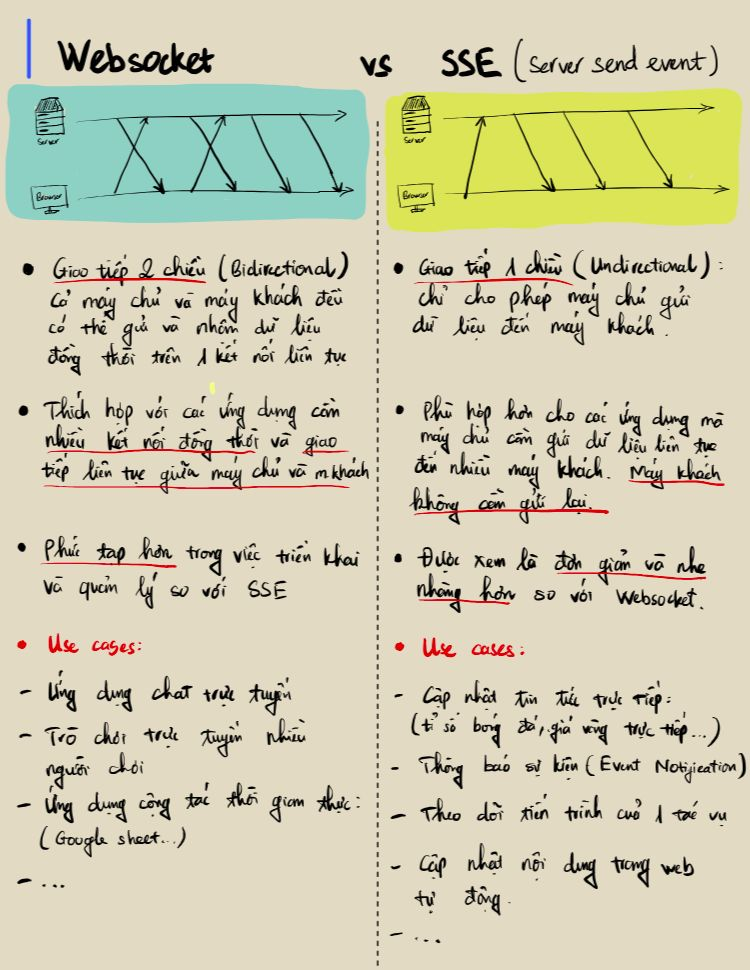 Websocket vs SSE (server send event)
Server
Browser
• Giao tiếp 2 chiều (Bidirectional)
Cả máy chủ và máy khách đều
có thể gửi và nhận dữ liệu
đồng thời trên 1 kết nối liên tục
• Thích hợp với các ứng dụng cần
nhiều kết nối đồng thời và giao
tiếp liên tục giữa máy chủ và m.khách
• Phức tạp hơn trong việc triển khai
và quản lý so với SSE
• Use cases:
- Ứng dụng chat trực tuyến
- Trò chơi trực tuyến nhiều
người chơi
- Ứng dụng cộng tác thời gian thực:
(Google sheet...)
- ...
Server
Browser
• Giao tiếp 1 chiều (Undirectional):
chỉ cho phép máy chủ gửi
dữ liệu đến máy khách.
• Phù hợp hơn cho các ứng dụng mà
máy chủ cần gửi dữ liệu liên tục
đến nhiều máy khách. Máy khách
không cần gửi lại.
• Được xem là đơn giản và nhẹ
nhàng hơn so với Websocket.
• Use cases:
- Cập nhật tin tức trực tiếp:
(tỉ số bóng đá, giá vàng trực tiếp...)
- Thông báo sự kiện (Event Notification)
- Theo dõi tiến trình của 1 tác vụ
- Cập nhật nội dung trang web
tự động.
- ...